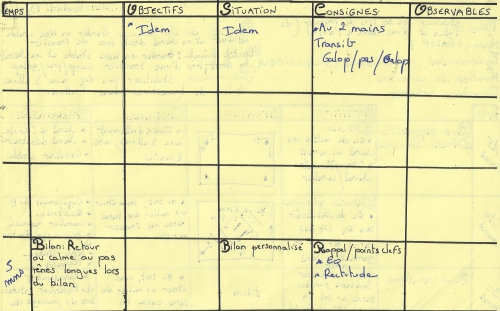 TEMPS OBJECTIFS SITUATION CONSIGNES OBSERVABLES
* Idem
Idem
* Au 2 mains
Transit
Galop/pas/Galop
5
mns
Bilan: Retour
au calme au pas
rênes longues lors
du bilan
Bilan personnalisé
Rappel/points clefs
* EQ
* Rectitude